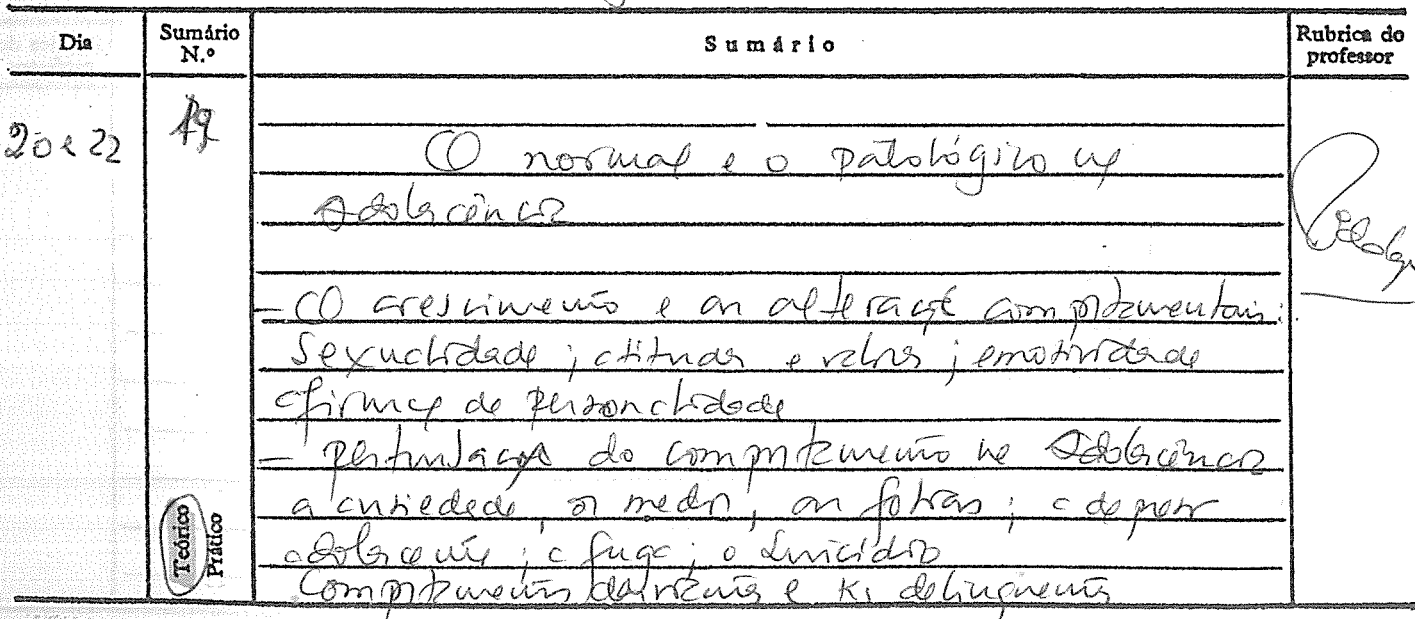 Dia
Sumário N.º
Sumário
Rubrica do professor
20 e 22
19
O normal e o patológico na
Adolescência
- O crescimento e as alterações comportamentais:
Sexualidade; atitudes e valores; emotividade
afirmação de personalidade
- perturbações do comportamento na Adolescência
a ansiedade, os medos, as fobias; a depressão
adolescente; a fuga; o suicídio
Comportamentos desviantes e delinquentes
Teórico
Prático